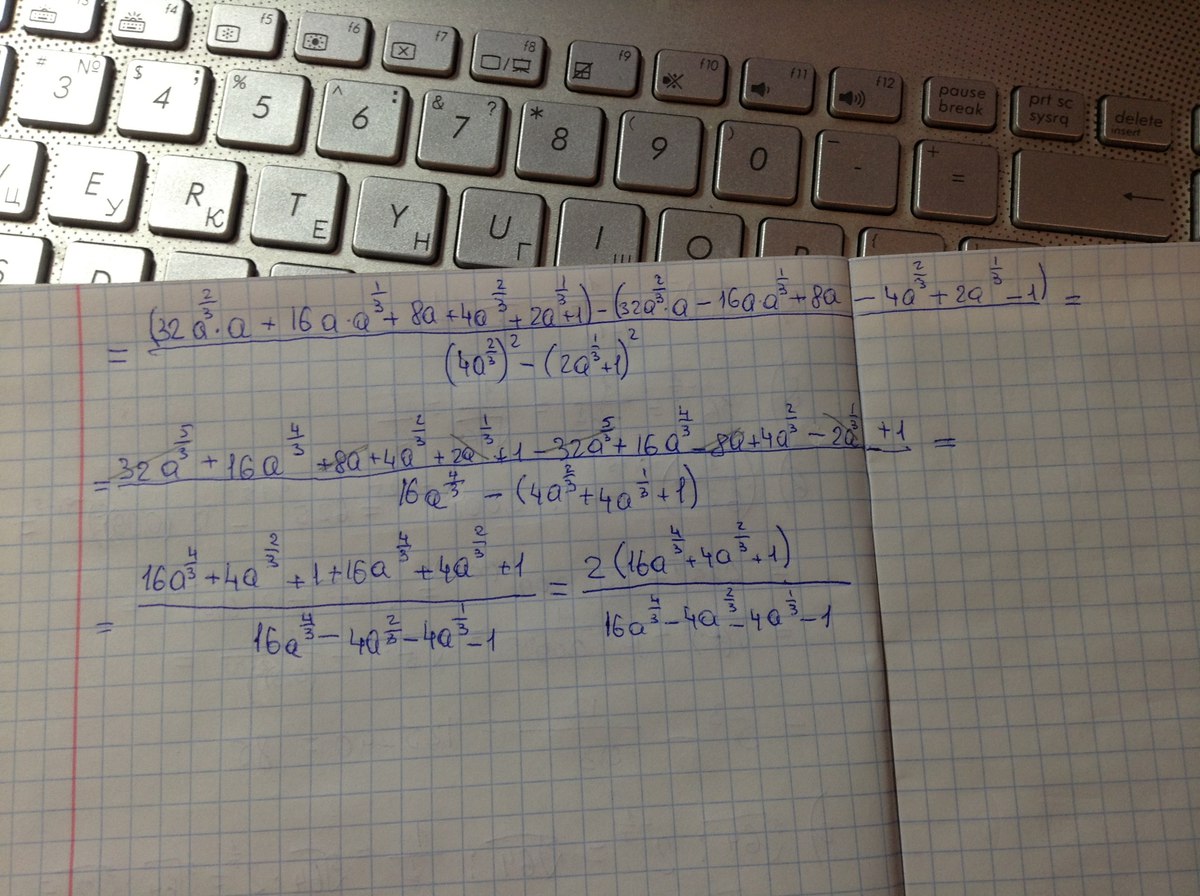 f4 f5 f6 f7 f8 f9 f10 f11 f12 pause break prt sc sysrq delete insert
# 3 № $ 4 ; % 5 ^ 6 : & 7 ? * 8 ( 9 ) 0 _ - + =
Ц E У R К T Е Y Н U Г I Ш O P {
= \frac{(32a^{\frac{2}{3}} \cdot a + 16a \cdot a^{\frac{1}{3}} + 8a + 4a^{\frac{2}{3}} + 2a^{\frac{1}{3}} + 1) - (32a^{\frac{2}{3}} \cdot a - 16a \cdot a^{\frac{1}{3}} + 8a - 4a^{\frac{2}{3}} + 2a^{\frac{1}{3}} - 1)}{(4a^{\frac{2}{3}})^2 - (2a^{\frac{1}{3}} + 1)^2} =
= \frac{32a^{\frac{5}{3}} + 16a^{\frac{4}{3}} + 8a + 4a^{\frac{2}{3}} + 2a^{\frac{1}{3}} + 1 - 32a^{\frac{5}{3}} + 16a^{\frac{4}{3}} - 8a + 4a^{\frac{2}{3}} - 2a^{\frac{1}{3}} + 1}{16a^{\frac{4}{3}} - (4a^{\frac{2}{3}} + 4a^{\frac{1}{3}} + 1)} =
= \frac{16a^{\frac{4}{3}} + 4a^{\frac{2}{3}} + 1 + 16a^{\frac{4}{3}} + 4a^{\frac{2}{3}} + 1}{16a^{\frac{4}{3}} - 4a^{\frac{2}{3}} - 4a^{\frac{1}{3}} - 1} = \frac{2(16a^{\frac{4}{3}} + 4a^{\frac{2}{3}} + 1)}{16a^{\frac{4}{3}} - 4a^{\frac{2}{3}} - 4a^{\frac{1}{3}} - 1}